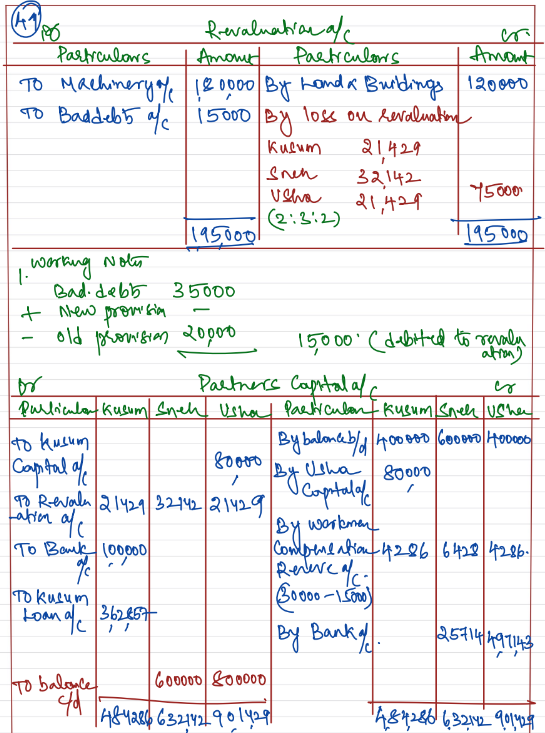 49
Dr Revaluation a/c Cr.
Particulars Amount Particulars Amount
To Machinery a/c 180000 By Land & Buildings 120000
To Baddebts a/c 15000 By loss on revaluation
Kusum 21,429
Sneh 32,142
Usha 21,429 75000
(2:3:2)
195000 195000
1. Working Notes
Bad.debts 35000
+ New provision -
- old provision 20,000 15,000. (debited to revaluation)
Dr Partners Capital a/c Cr
Particulars Kusum Sneh Usha Particulars Kusum Sneh Usha
To Kusum Capital a/c 80000 By balance b/d 400000 600000 400000
By Usha Capital a/c 80000
To Revalu-ation a/c 21429 32142 21429
By workmen
To Bank a/c 100000 Compensation 4286 6428 4286.
Reserve a/c.
(30000-15000)
To Kusum Loan a/c 362857
By Bank a/c. 25714 497143
To balance c/d 600000 800000
484286 632142 901429 484286 632142 901429